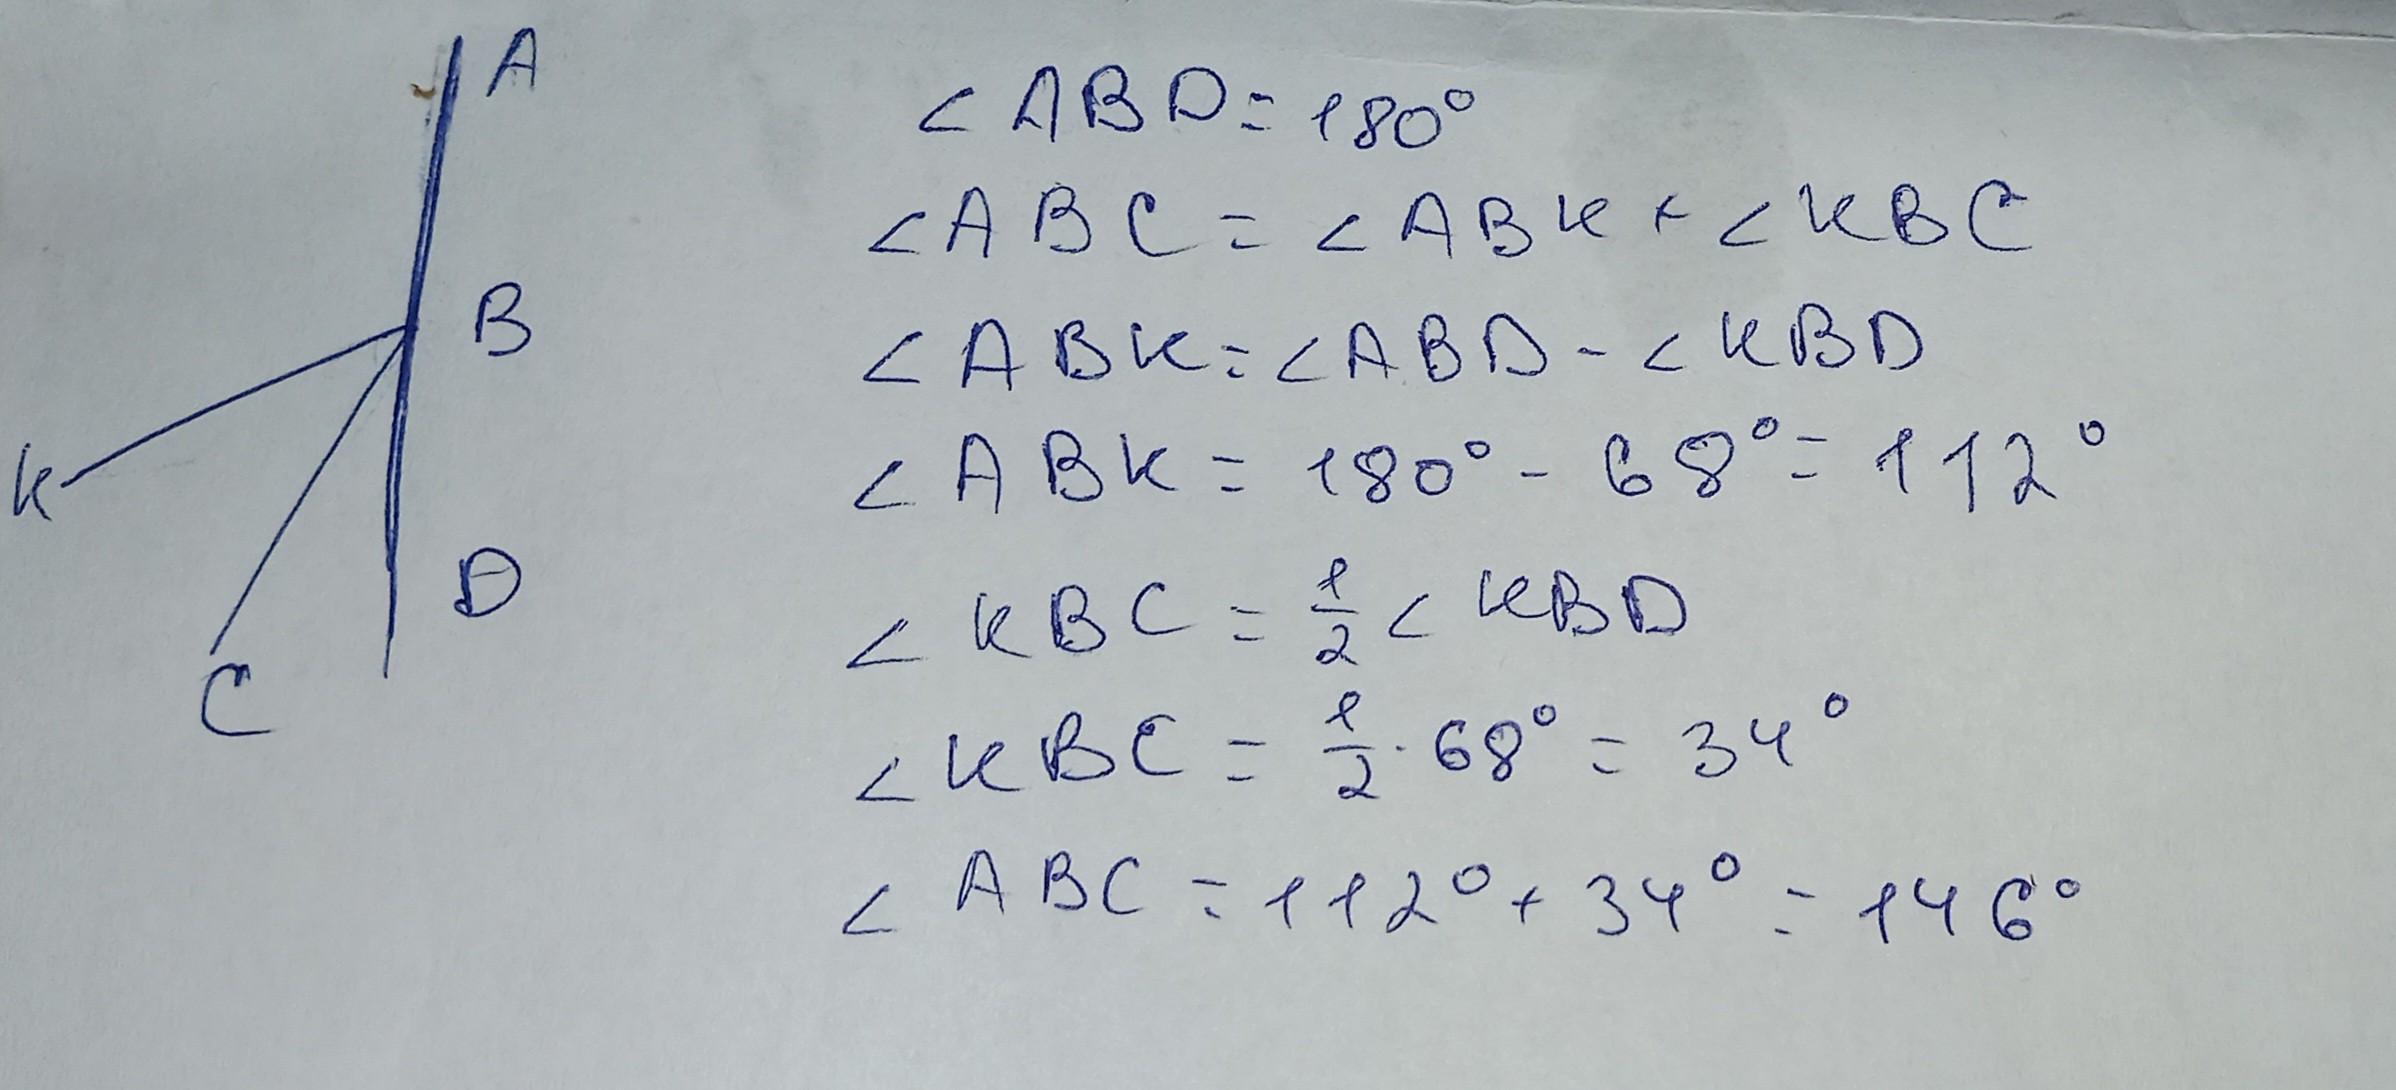 A
B
K
D
C
∠ABD = 180°
∠ABC = ∠ABK + ∠KBC
∠ABK = ∠ABD - ∠KBD
∠ABK = 180° - 68° = 112°
∠KBC = 1/2 ∠KBD
∠KBC = 1/2 · 68° = 34°
∠ABC = 112° + 34° = 146°